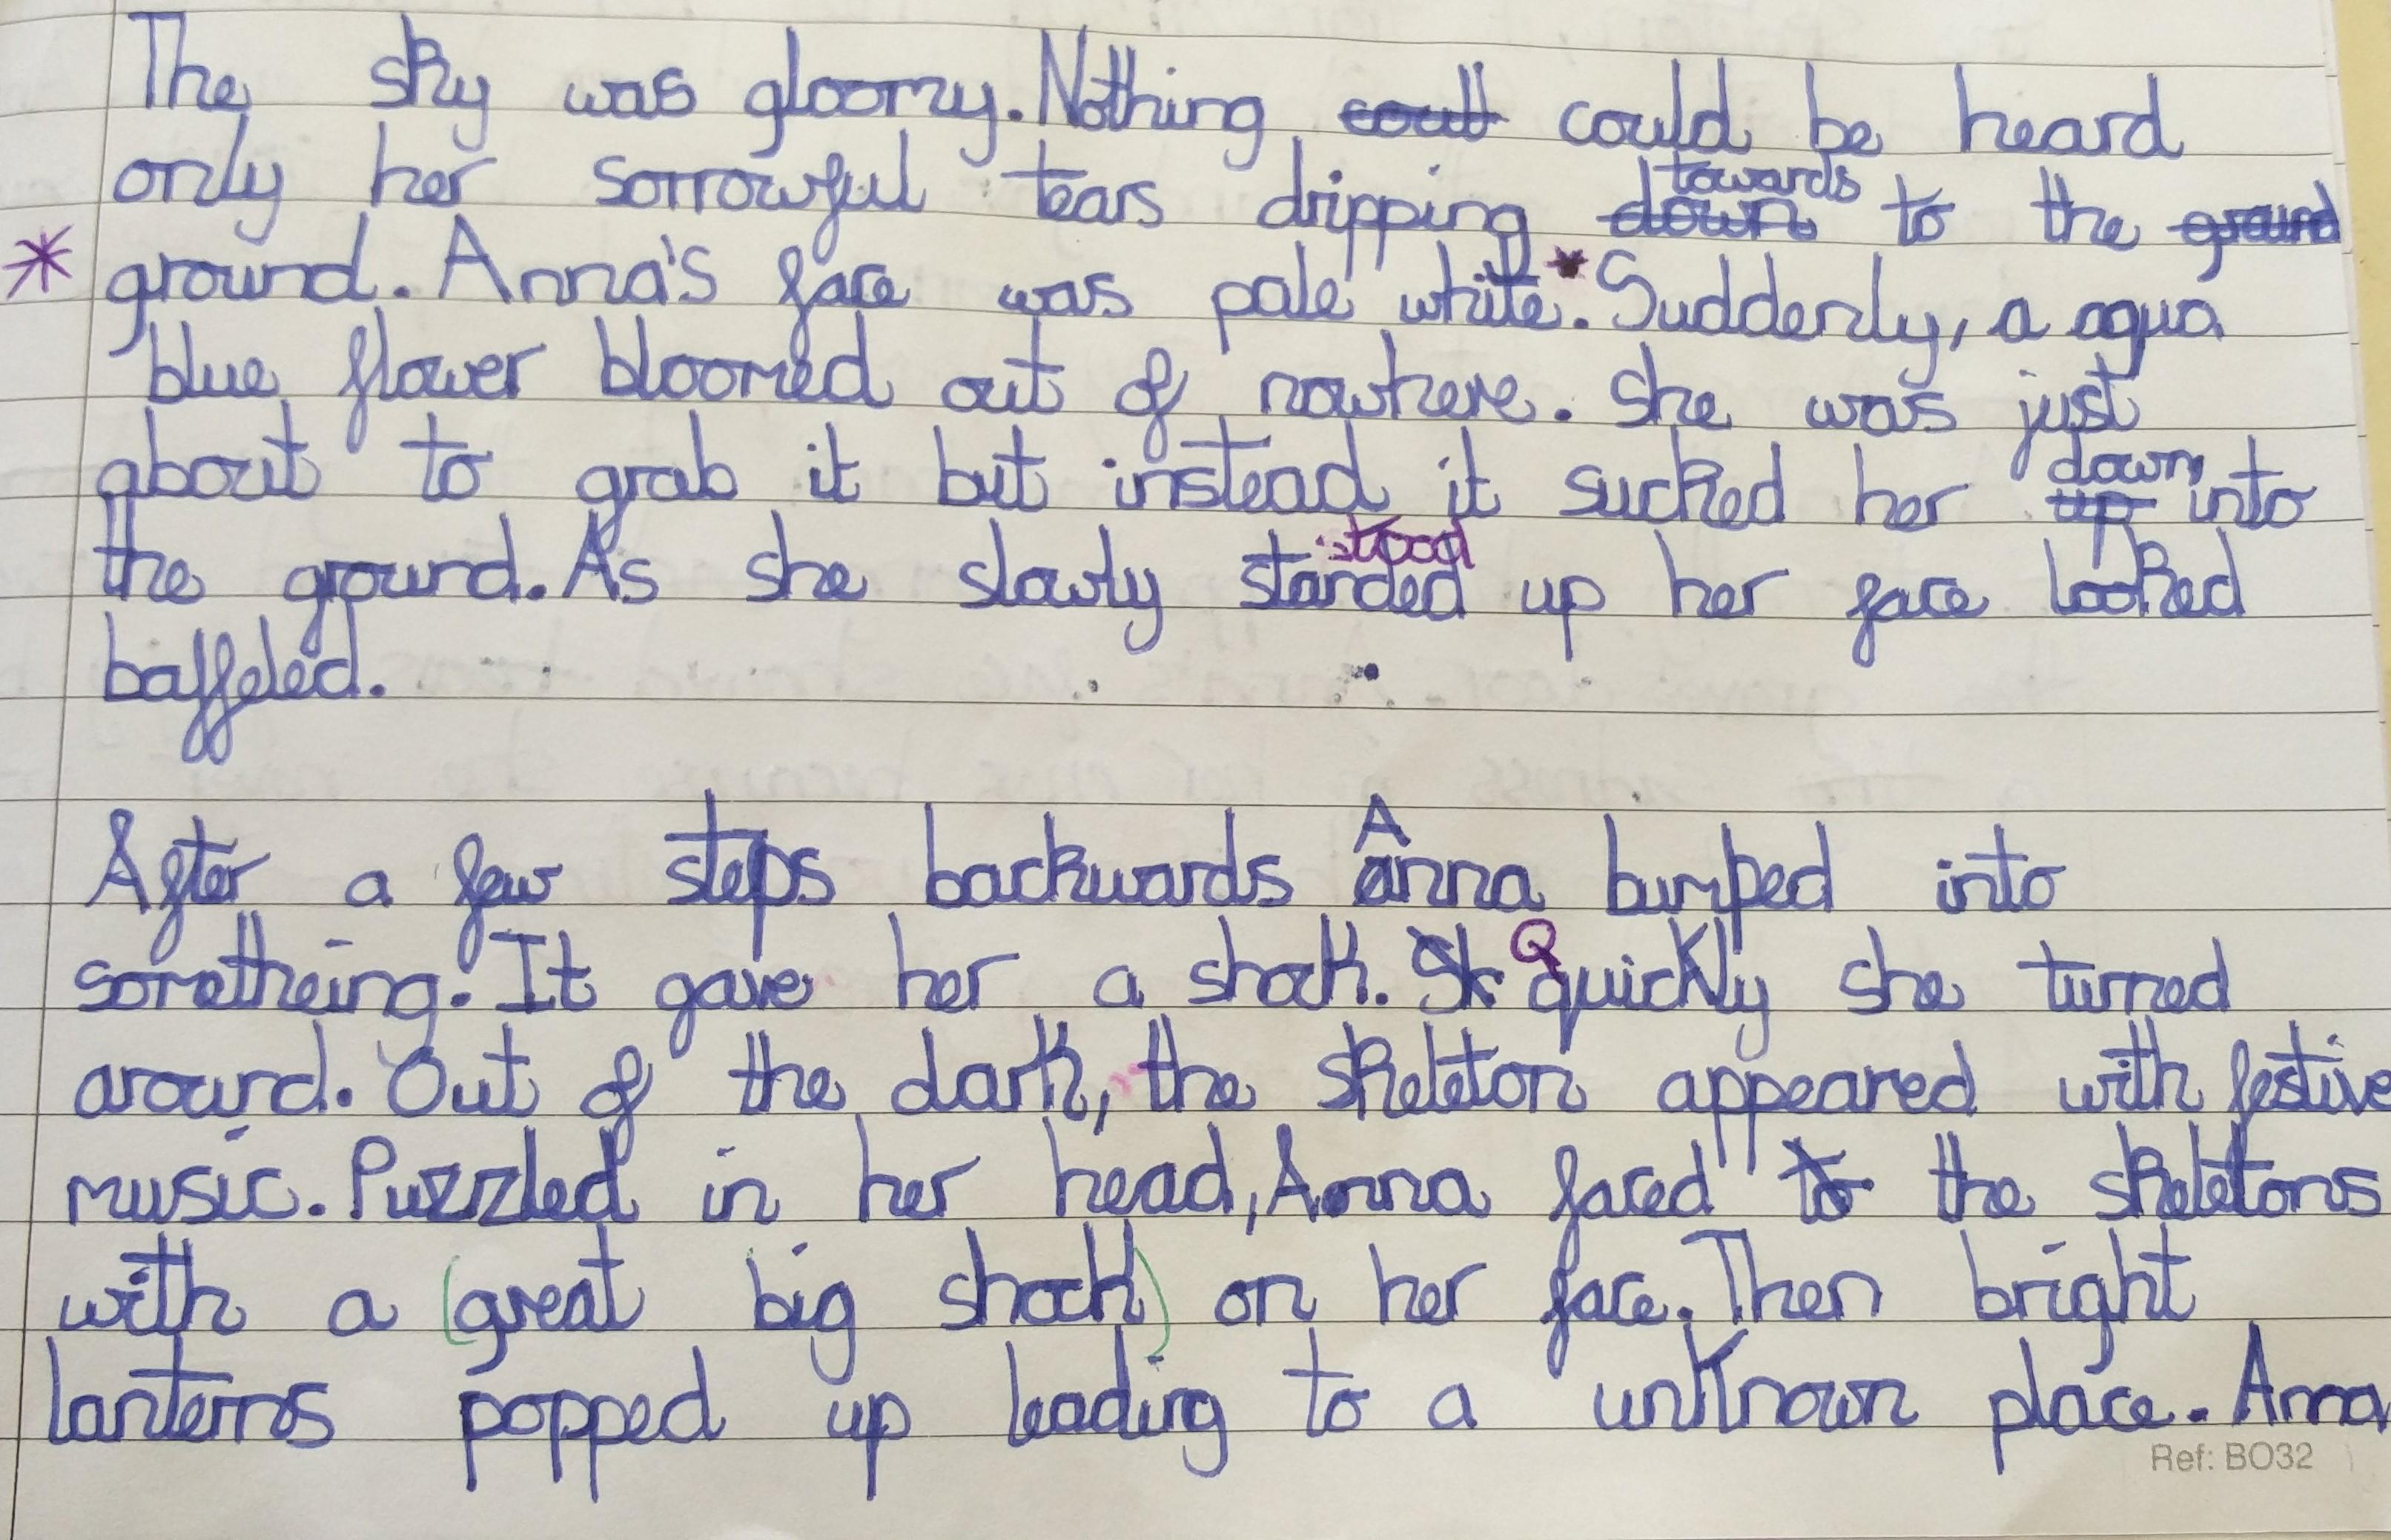 The sky was gloomy. Nothing could be heard
only her sorrowful tears dripping towards to the
ground. Anna's face was pale white.* Suddenly, a aqua
blue flower bloomed out of nowhere. She was just
about to grab it but instead it sucked her down into
the ground. As she slowly standed stood up her face looked
baffeled.
After a few steps backwards Anna bumped into
sometheing. It gave her a shock. Quickly she turned
around. Out of the dark, the skeleton appeared with festive
music. Puzzled in her head, Anna faced the skeletons
with a (great big shock) on her face. Then bright
lanterns popped up leading to a unknown place. Anna
Ref: BO32